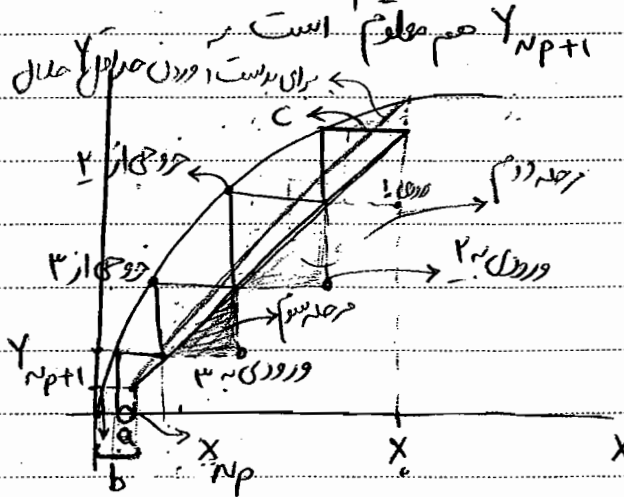 Y Np+1 هم معلوم است
برای بدست آوردن حداقل Y حلال
C
خروجی از ۲
مرحله دوم
ورودی به ۲
خروجی از ۳
مرحله سوم
ورودی به ۳
Y Np+1
a
b
X Np
X₀
X